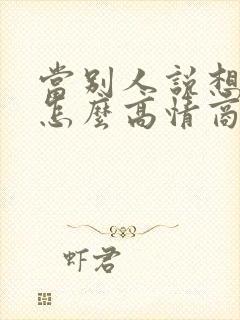 當別人說想
怎麼高情商
虾君